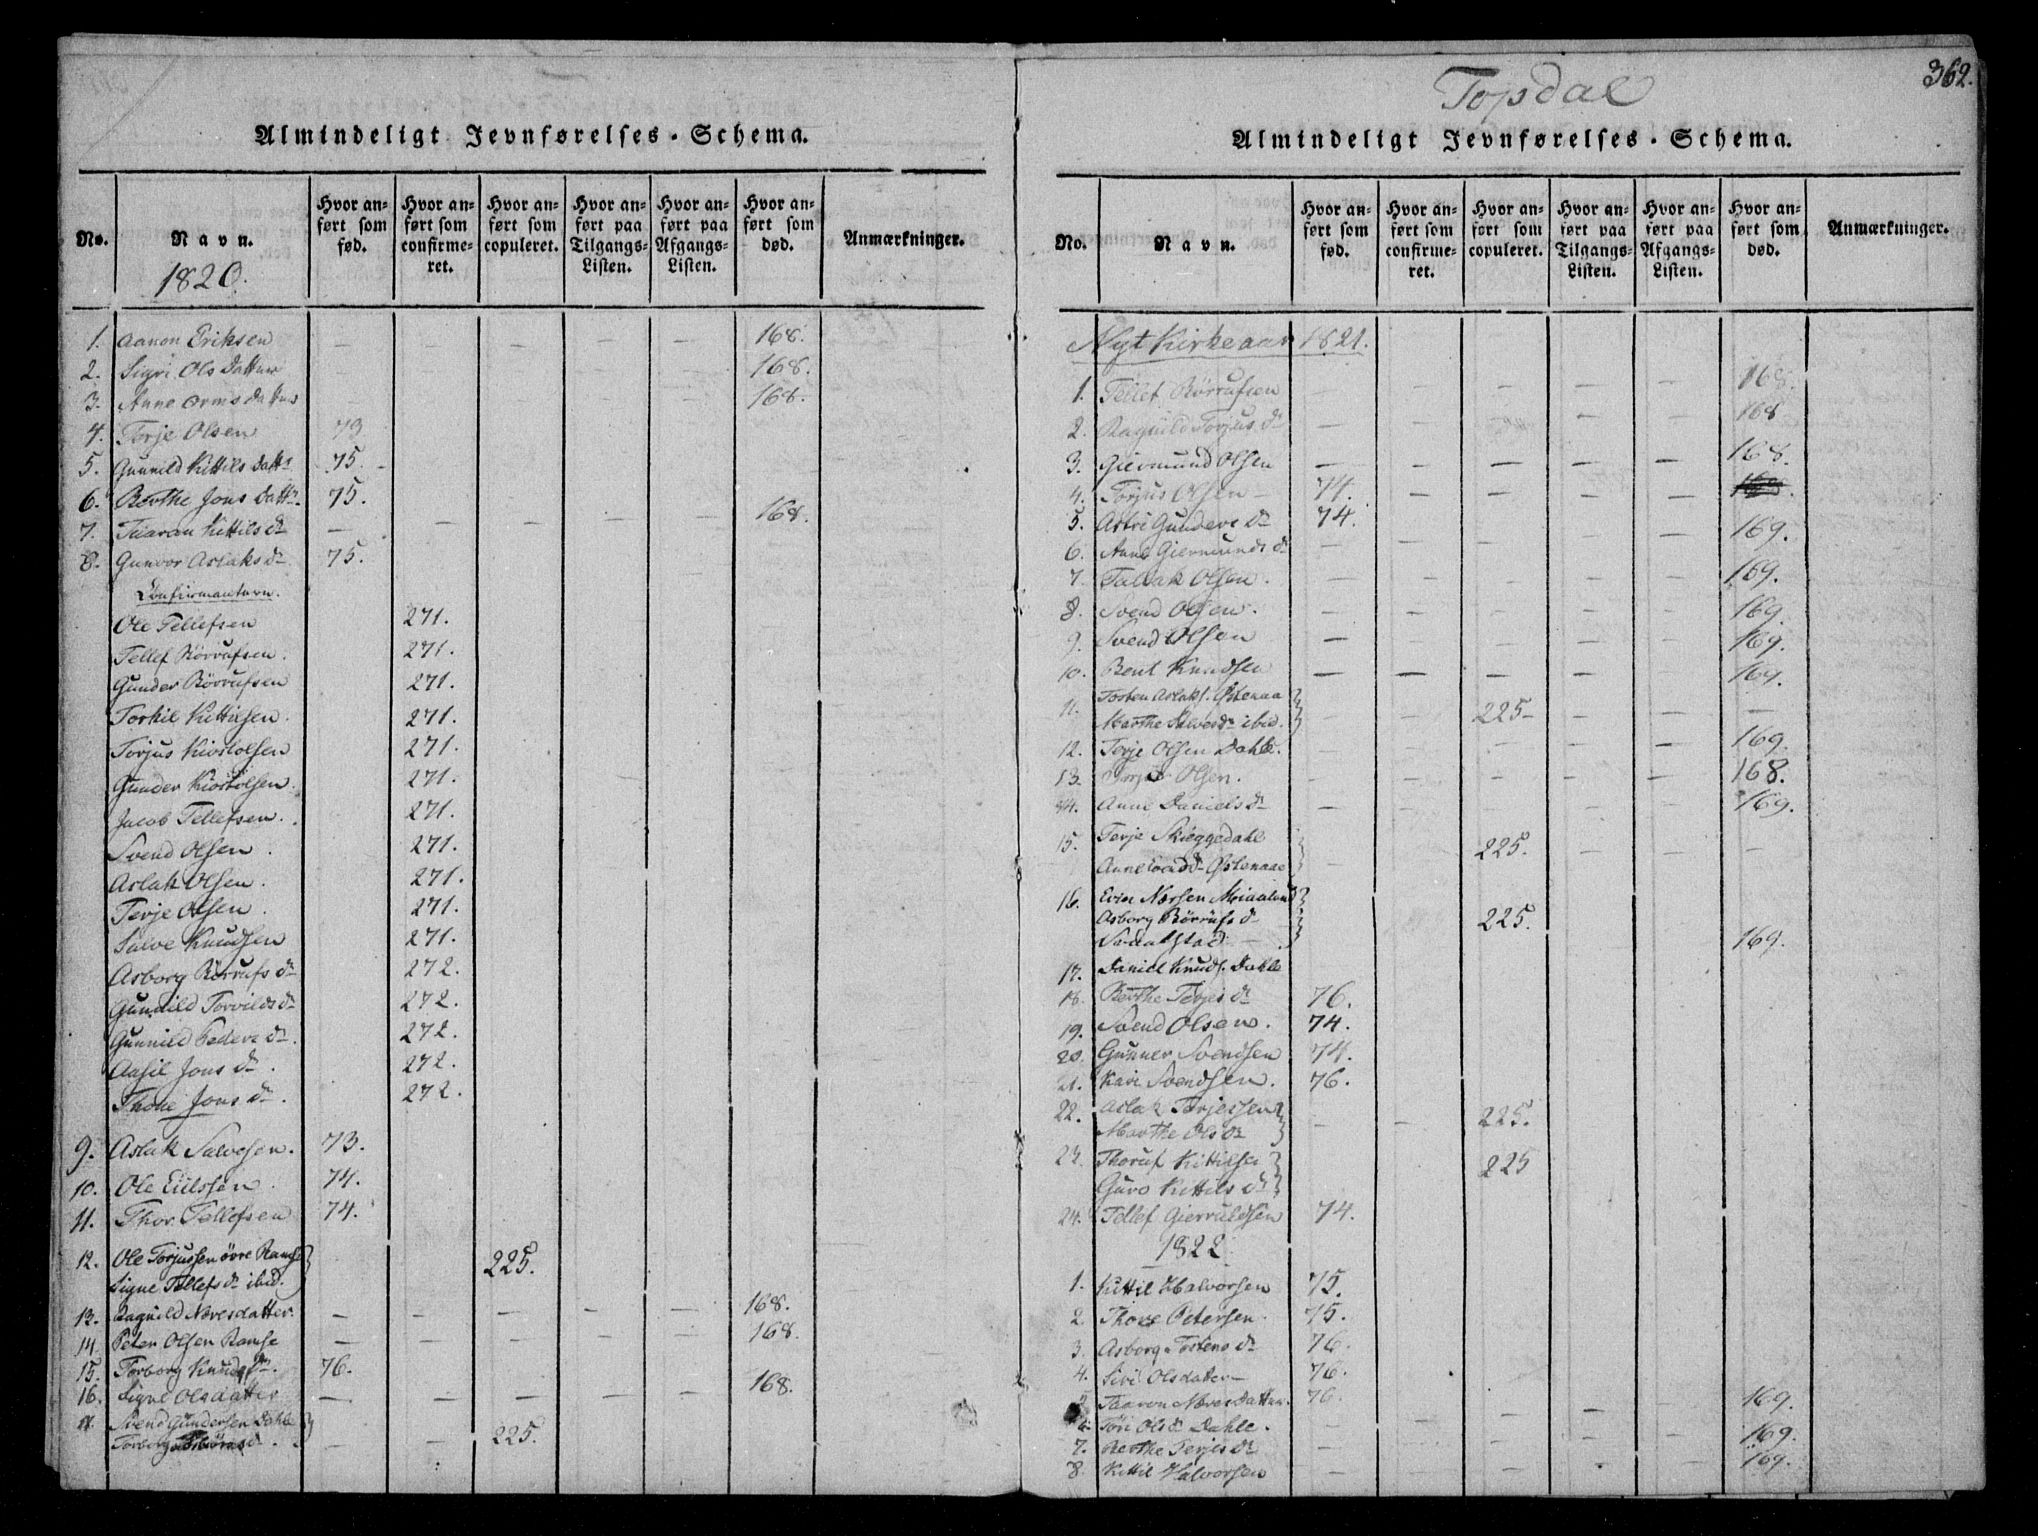 Almindeligt Jevnførelses-Schema.
No. Navn. Hvor anført som fød. Hvor anført som confirmeret. Hvor anført som copuleret. Hvor anført paa Tilgangs-Listen. Hvor anført paa Afgangs-Listen. Hvor anført som død. Anmærkninger.
1820.
1. Aanon Eriksen — — — — — 168.
2. Sigri Ols Datter 168.
3. Anne Orms datter 168.
4. Torje Olsen 73
5. Gunnild Kittils Dattr 75.
6. Berthe Jons Dattr. 75.
7. Taaran Kittils dr — — — — — 168.
8. Gunvor Aslaks dr 75.
Confirmantern.
Ole Tellefsen 271.
Tellef Rörrufsen. 271.
Gunder Rörrufsen 271.
Torkil Kittilsen. 271.
Torjus Kiöstolsen 271.
Gunder Kiöstolsen. 271.
Jacob Tellefsen. 271.
Svend Olsen. 271.
Aslak Olsen. 271.
Terje Olsen. 271.
Salve Knudsen 271.
Asborg Rörrufs dr 272.
Gunnild Torvilds dr 272.
Gunnild Peders dr. 272.
Aasil Jons dr. 272.
Thone Jons dr. 272.
9. Aslak Salvesen. 73.
10. Ole Eilssen. 74.
11. Thor Tellefsen 74.
12. Ole Torjussen övre Ramse
Signe Tellefs dr ibid. 225.
13. Ragnild Næresdatter. — — — — — 168.
14. Peter Olsen Ramse — — — — — 168.
15. Torborg Knuds dr. 76.
16. Signe Olsdatter — — — — — 168.
17. Svend Gundersen Dahle
Torborg dr. — — 225.
Topsdal
362.
Almindeligt Jevnførelses-Schema.
No. Navn. Hvor anført som fød. Hvor anført som confirmeret. Hvor anført som copuleret. Hvor anført paa Tilgangs-Listen. Hvor anført paa Afgangs-Listen. Hvor anført som død. Anmærkninger.
Nyt Kirkeaar 1821.
1. Tellef Rörrufsen — — — — — 168.
2. Ragnild Torjus dr — — — — 168
3. Giermund Olsen — — — — — 168.
4. Torjus Olsen — 74. — — — —
5. Astri Gunders dr 74. 169.
6. Anne Giermunds dr — — — — —
7. Tallak Olsen. — — — — — 169.
8. Svend Olsen. — — — — — 169.
9. Svend Olsen — — — — — 169.
10. Bent Knudsen — — — — — 169.
11. Torsten Aslaks. Östenaa
Marthe Salves dr ibid. — — 225 — — — —
12. Terje Olsen Dahle. — — — — — 169.
13. Torjus Olsen. — — — — — 168.
14. Anne Daniels dr — — — — — 169.
15. Terje Skieggedahl
Anne dr Östenaae — 225. — — —
16. Even Nersen
Asborg Rörrufs dr 225.
169.
17. Daniel Knuds. Dahle
18. Berthe Terjes dr 76.
19. Svend Olsen. 74.
20. Gunner Svendsen 74.
21. Kari Svendsen. 76.
22. Aslak Terjessen
Marthe Ols dr — — 225.
23. Thoruf Kittilsen
Guro Kittils dr 225
24. Tellef Gierruldsen 74.
1822
1. Kittil Halvorsen 75.
2. Thore Petersen. 75.
3. Asborg Tostens dr 76.
4. Siri Olsdatter — 76.
5. Taaron Næres Datter. 76. 169.
6. Töri Ols dr Dahle. — — — — —
7. Berthe Terjes dr — — — — — 169.
8. Kittil Halvorsen — — — — — 169.